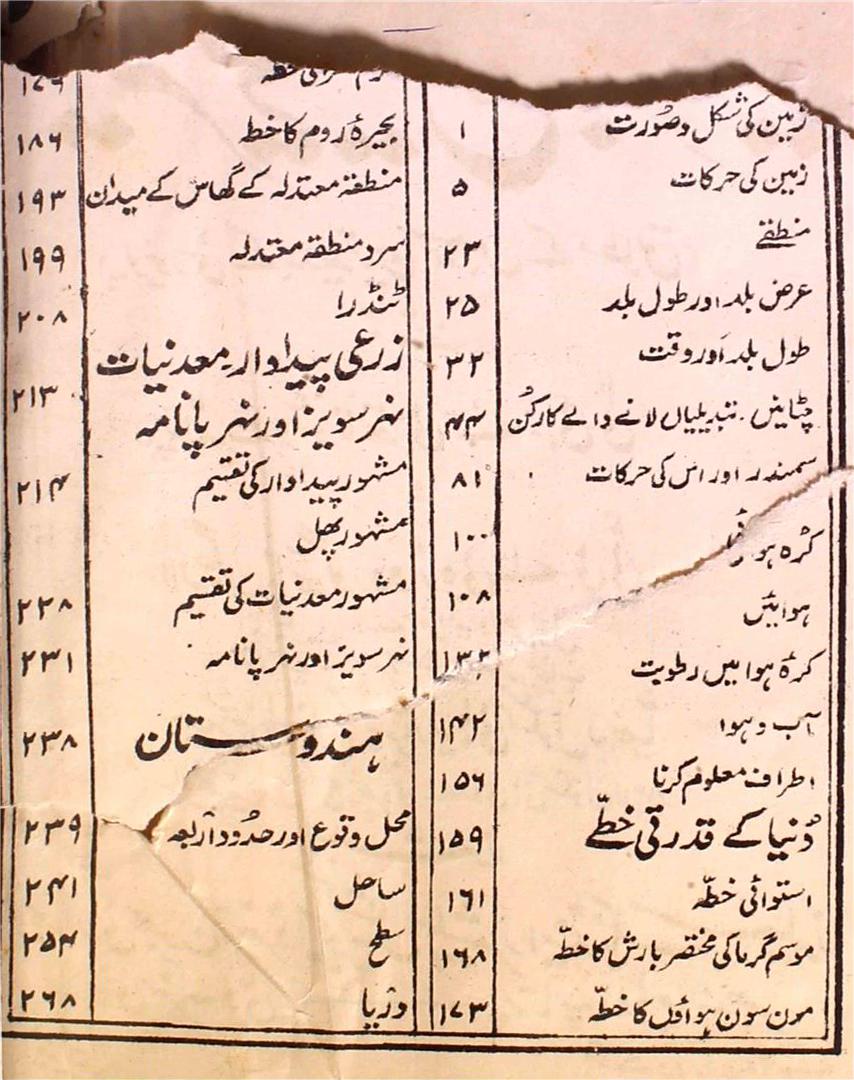 زمین کی شکل و صورت ۱
زمین کی حرکات ۵
منطقے ۲۳
عرض بلد اور طول بلد ۲۵
طول بلد اور وقت ۳۲
چٹانیں . تبدیلیاں لانے والے کارکن ۴۴
سمندر اور اس کی حرکات ۸۱
کرہ ہوائی ۱۰۰
ہوائیں ۱۰۸
کرۂ ہوا میں رطوبت ۱۳۲
آب و ہوا ۱۴۲
اطراف معلوم کرنا ۱۵۶
دُنیا کے قدرتی خطّے ۱۵۹
استوائی خطّہ ۱۶۱
موسم گرما کی مختصر بارش کا خطّہ ۱۶۸
مون سون ہواؤں کا خطّہ ۱۷۳
خطہ ۱۷۹
بحیرۂ روم کا خطہ ۱۸۶
منطقۂ معتدلہ کے گھاس کے میدان ۱۹۳
سرد منطقۂ معتدلہ ۱۹۹
ٹنڈرا ۲۰۸
زرعی پیداوار۔ معدنیات
نہر سویز اور نہر پانامہ ۲۱۳
مشہور پیداوار کی تقسیم ۲۱۴
مشہور پھل
مشہور معدنیات کی تقسیم ۲۲۸
نہر سویز اور نہر پانامہ ۲۳۱
ہندوستان ۲۳۸
محل وقوع اور حدُود اربعہ ۲۳۹
ساحل ۲۴۱
سطح ۲۵۴
دریا ۲۶۸